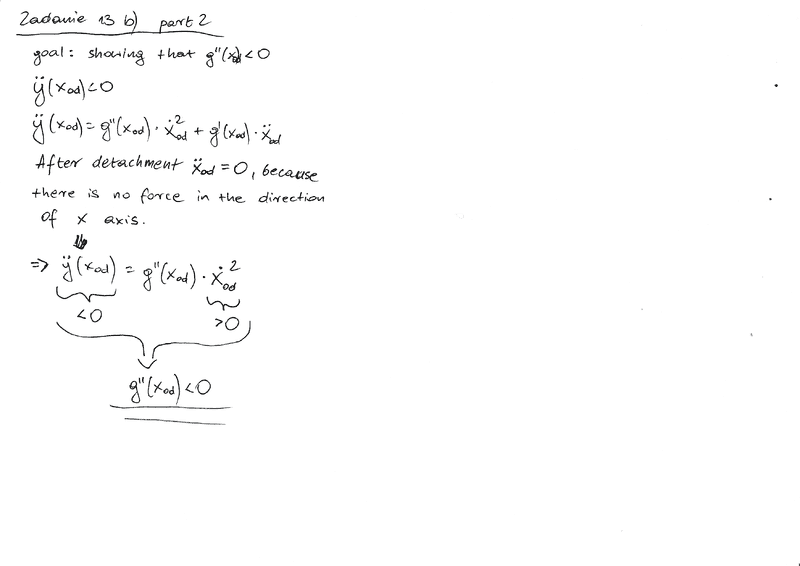 Zadanie 13 b) part 2
goal: showing that g''(x_od)<0
ÿ(x_od)<0
ÿ(x_od) = g''(x_od) · ẋ_od² + g'(x_od) · ẍ_od
After detachment ẍ_od = 0, because
there is no force in the direction
of x axis.
=> ÿ(x_od) = g''(x_od) · ẋ_od²
<0 >0
g''(x_od)<0